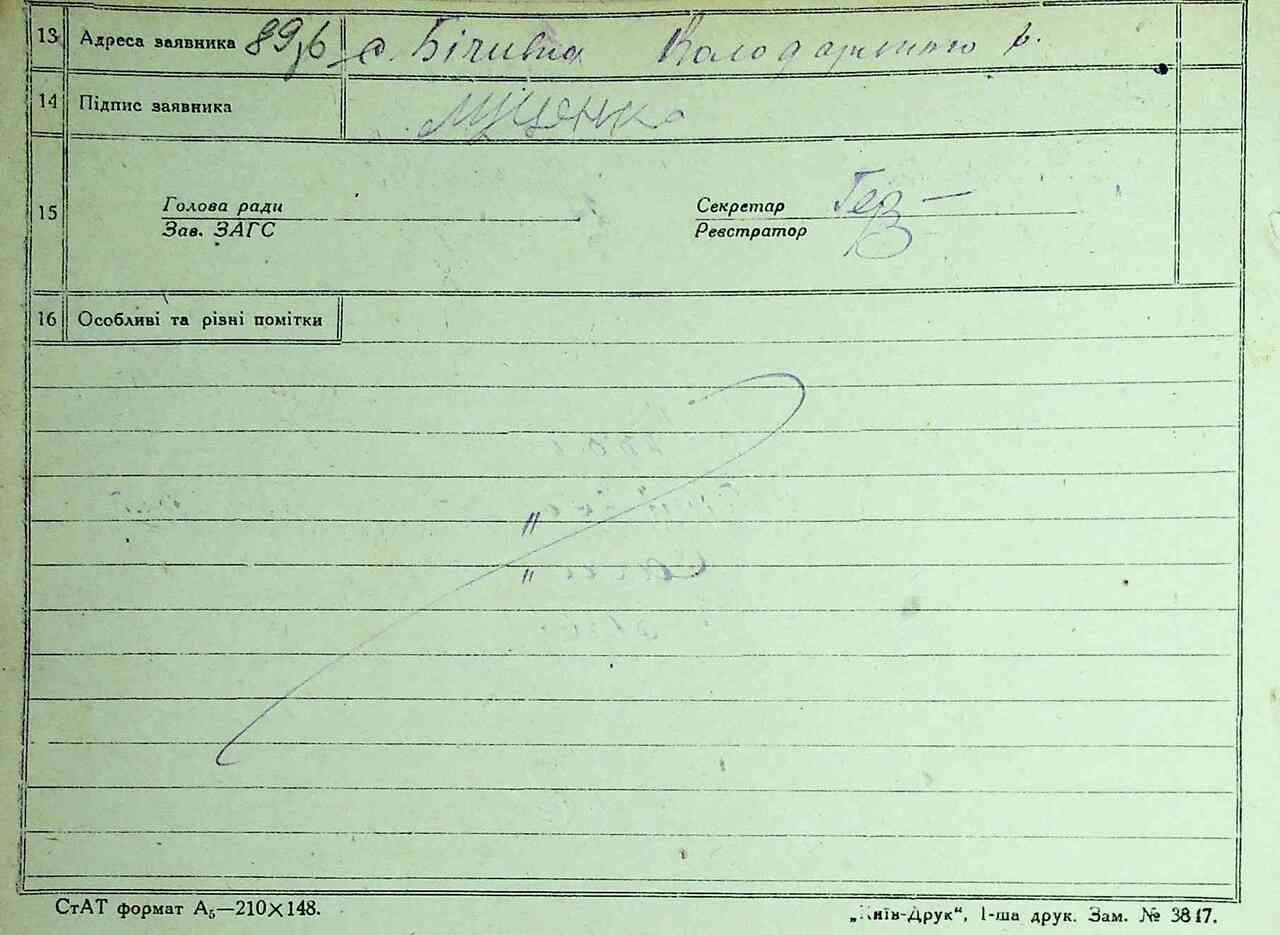 13 Адреса заявника 89зв с. Бічивна Володарського р.
14 Підпис заявника Луценко
Голова ради Секретар
15
Зав. ЗАГС Реєстратор
16 Особливі та різні помітки
"
"
СтАТ формат А5—210×148.
„Київ-Друк“, 1-ша друк. Зам. № 3817.